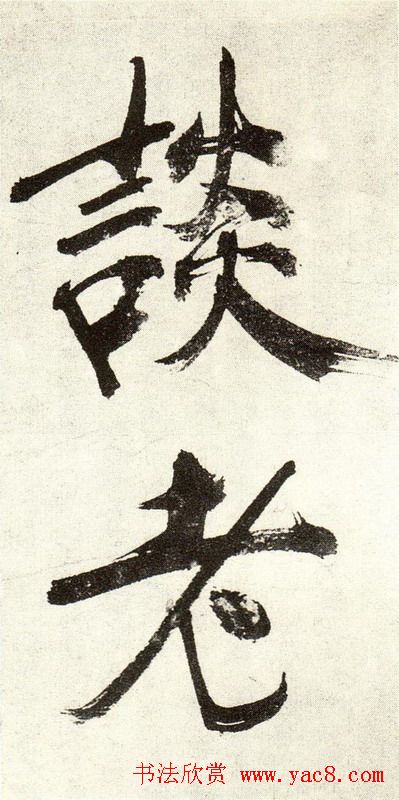 談
老
书法欣赏 www.yac8.com